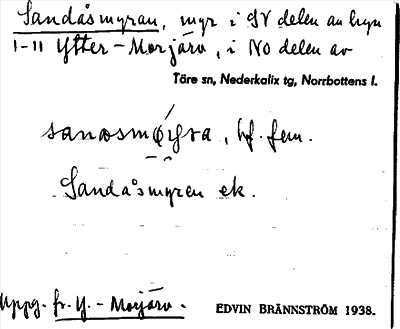 Sandåsmyran, myr i SV delen av byn
1-11 Ytter-Morjärv, i NO delen av
Täre sn, Nederkalix tg, Norrbottens l.
bf. fem.
Sandåsmyren ek.
Uppg. fr. Y.-Morjärv.
EDVIN BRÄNNSTRÖM 1938.